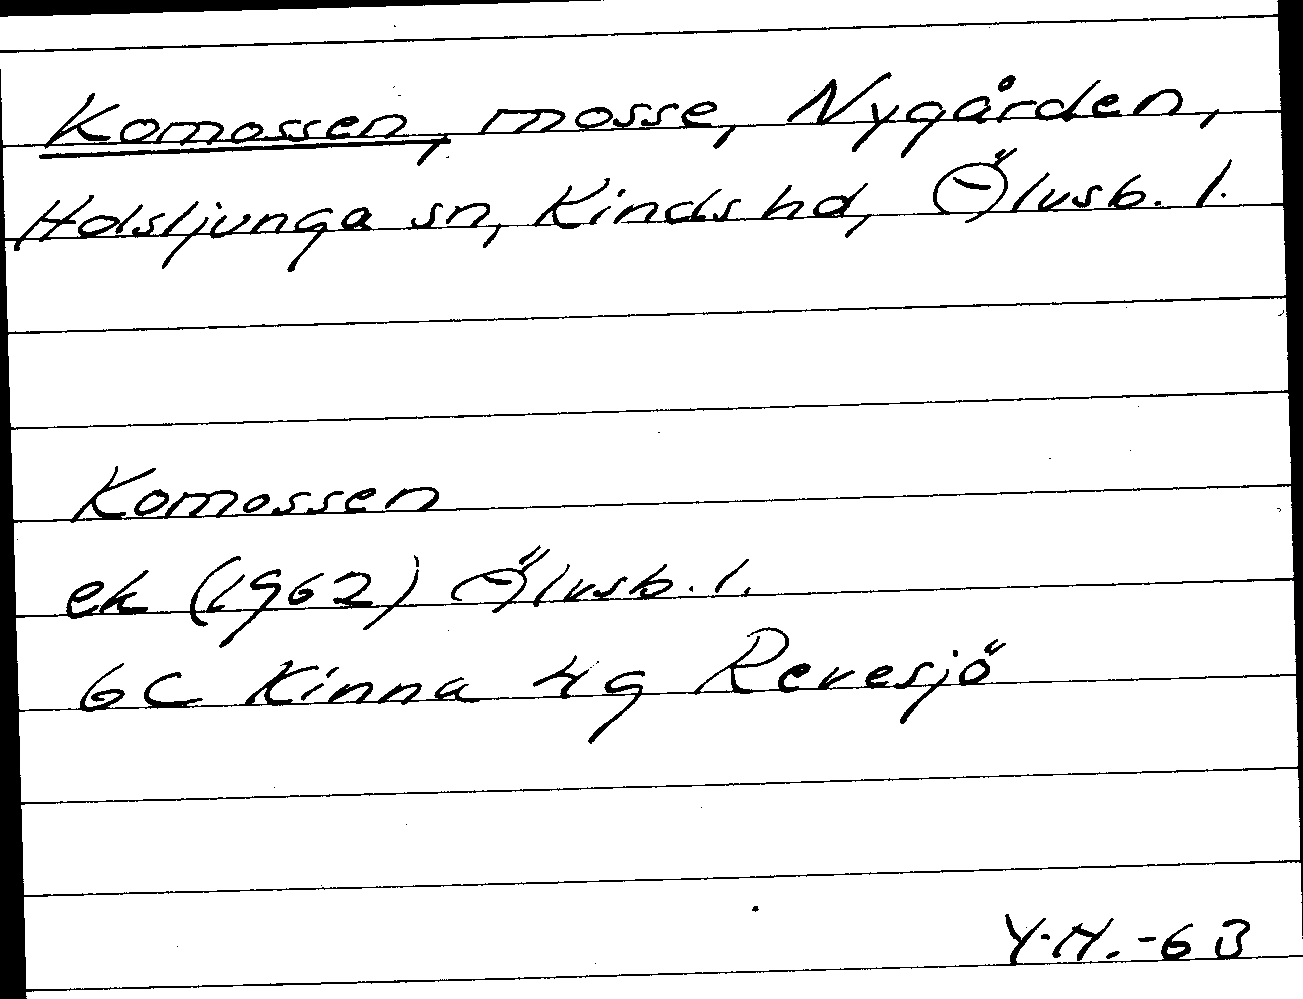 Komossen, mosse, Nygården,
Holsljunga sn, Kinds hd, Älvsb. l.
Komossen
ek (1962) Älvsb. l.
6C Kinna 4g Revesjö
Y.H.-63